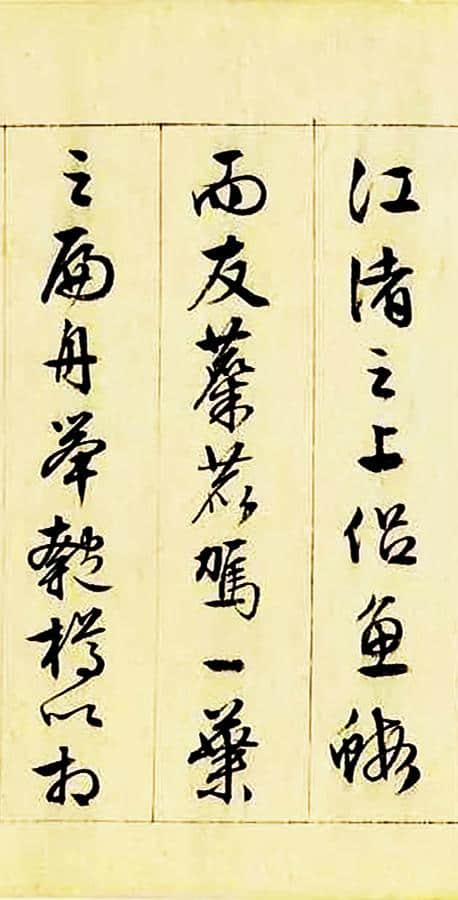 江渚之上侶魚蝦
而友麋鹿駕一葉
之扁舟舉匏樽以相